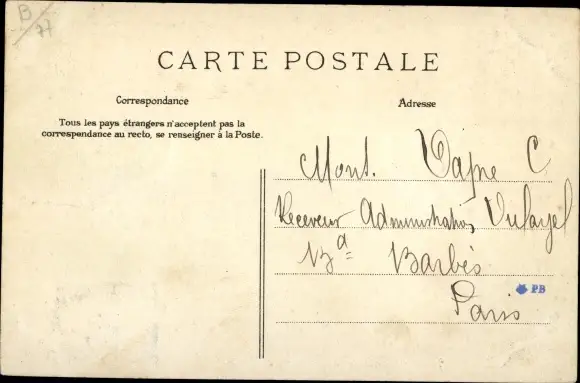 B/77
CARTE POSTALE
Correspondance
Adresse
Tous les pays étrangers n'acceptent pas la
correspondance au recto, se renseigner à la Poste.
Mons.
Receveur Administration
Bd Barbès
Paris
PB